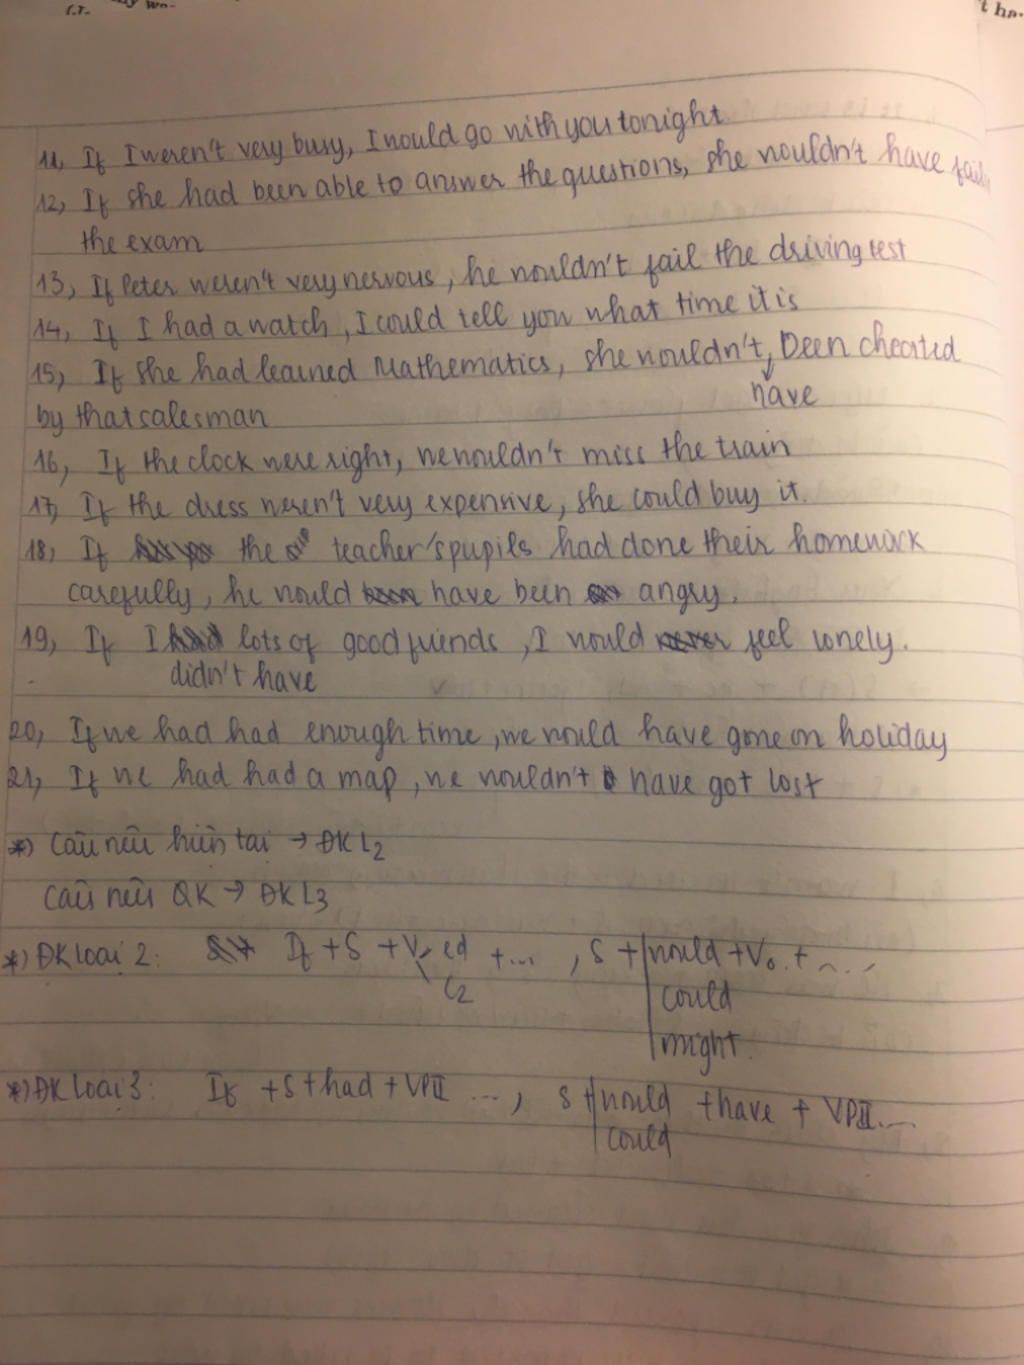 11, If I weren't very busy, I would go with you tonight
12, If she had been able to answer the questions, she wouldn't have fail
the exam
13, If Peter weren't very nervous, he wouldn't fail the driving test
14, If I had a watch, I could tell you what time it is
15, If she had learned Mathematics, she wouldn't been cheated
have
by that salesman
16, If the clock were right, we wouldn't miss the train
17, If the dress weren't very expensive, she could buy it.
18, If the teacher's pupils had done their homework
carefully, he would have been angry.
19, If I lots of good friends, I would feel lonely.
didn't have
20, If we had had enough time, we would have gone on holiday
21, If we had had a map, we wouldn't have got lost
*) Câu nếu hiện tại → ĐKL2
Câu nếu QK → ĐKL3
*) ĐK loại 2: If + S + V, ed + ..., S + would + V0 + ...
C2
could
might
*) ĐK loại 3: If + S + had + VPII ..., S + would + have + VPII...
could